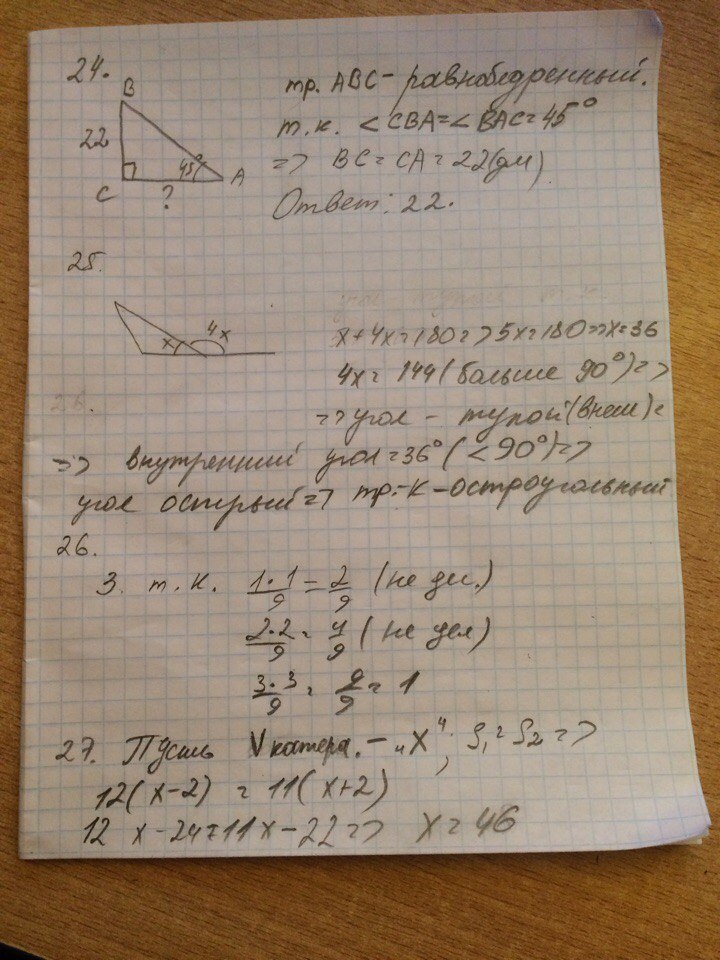 24.
B
22
45°
C
?
A
тр. ABC - равнобедренный.
т.к. <CBA = <BAC = 45°
=> BC = CA = 22(дм)
Ответ: 22.
25.
x
4x
x+4x=180=>5x=180=>x=36
4x = 144 (больше 90°)=>
=> угол - тупой (внеш)=
=> внутренний угол = 36° (<90°)=>
угол острый => тр-к - остроугольный
26.
3. т.к. 1·1/9 = 2/9 (не дел.)
2·2/9 = 4/9 (не дел)
3·3/9 = 9/9 = 1
27. Пусть V катера. - "x", S₁ = S₂ =>
12(x-2) = 11(x+2)
12 x - 24 = 11x - 22 => x = 46